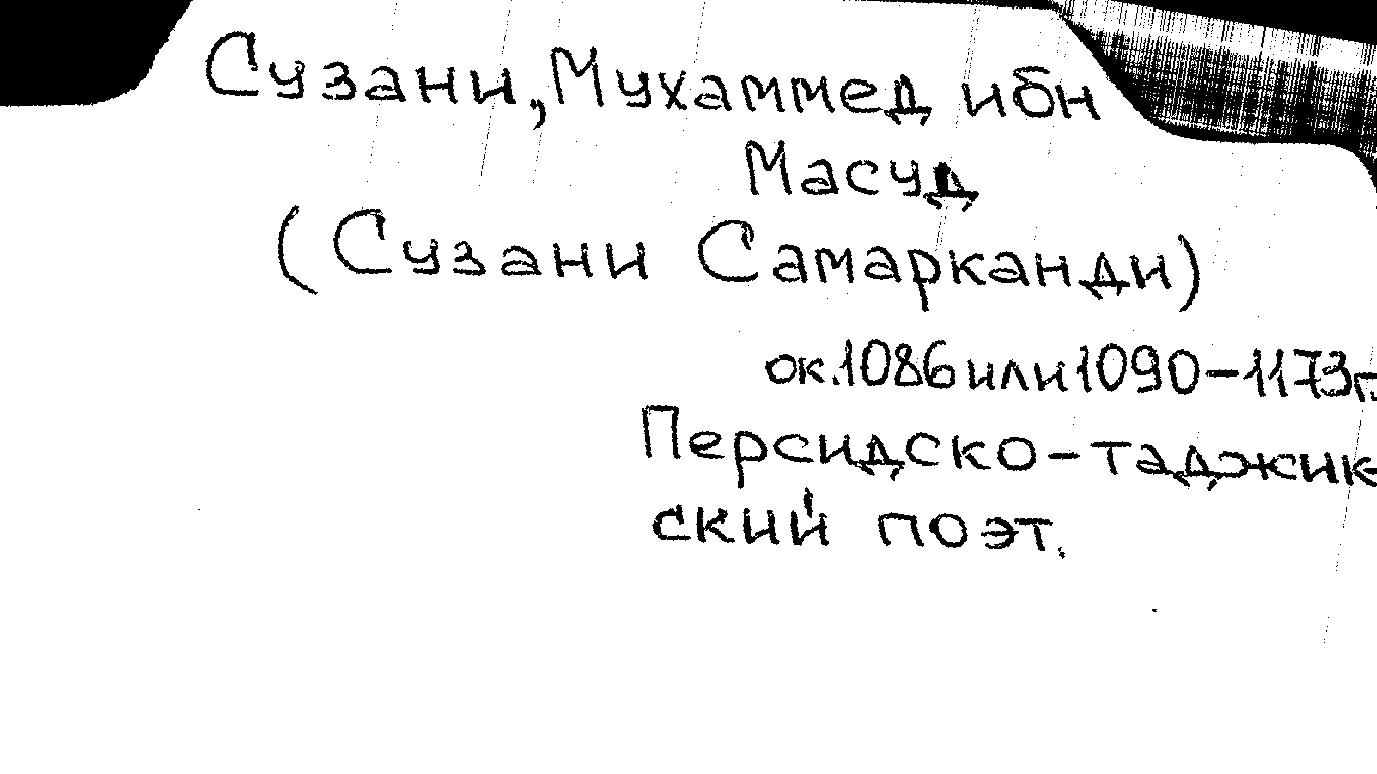 Сузани, Мухаммед ибн
Масуд
(Сузани Самарканди)
ок. 1086 или 1090-1173г.
Персидско-таджик-
ский поэт.